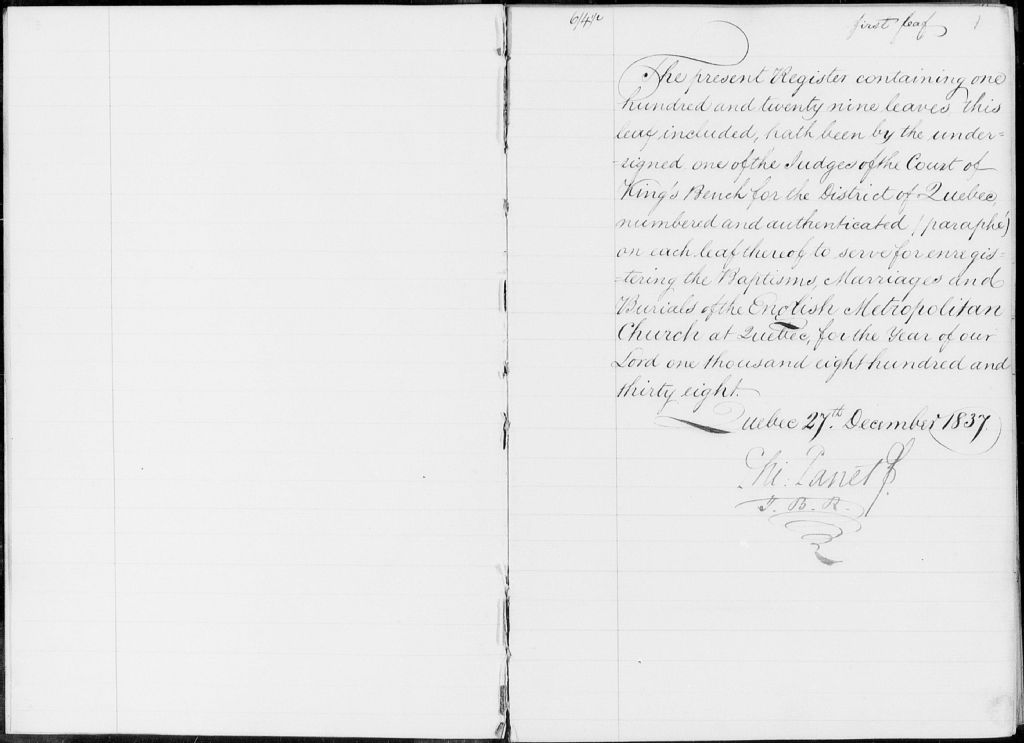 6/4½
first leaf 1
The present Register containing one
hundred and twenty nine leaves this
leaf included, hath been by the under=
=signed one of the Judges of the Court of
King's Bench for the District of Quebec,
numbered and authenticated (paraphé)
on each leaf thereof to serve for enregis=
=tering the Baptisms, Marriages and
Burials of the English Metropolitan
Church at Quebec, for the Year of our
Lord one thousand eight hundred and
thirty eight.
Quebec 27th December 1837.
Phi: Panet
J. B. R.